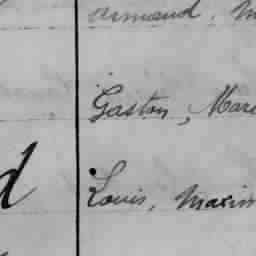 Armand, M
Gaston, Mar
d
Louis, Maxim